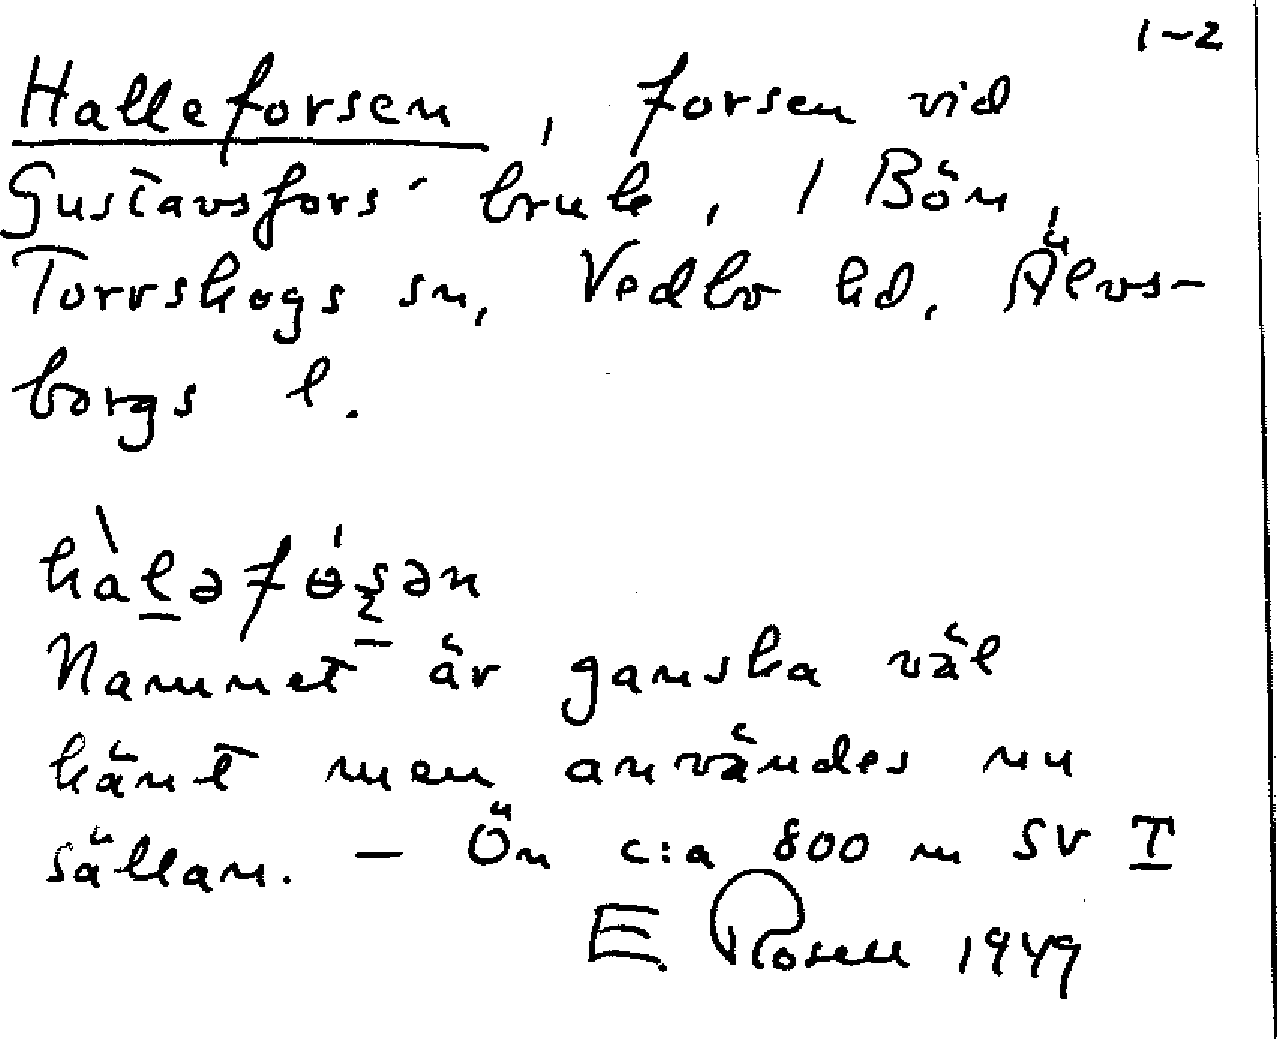 1-2
Halleforsen, forsen vid
Gustavsfors' bruk, / Bön,
Torrskogs sn, Vedbo hd. Älvs-
borgs l.
Namnet är ganska väl
känt men användes nu
sällan. — Ön c:a 800 m SV T
E Rosell 1949